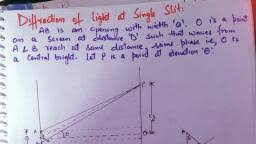 Diffraction of light at Single Slit:
AB is an opening with width 'a'. O is a point
on a screen at distance 'D' such that waves from
A & B reach at same distance, same phase i.e, O is
a central bright. Let P is a point at elevation 'θ'.
P
A
θ
O